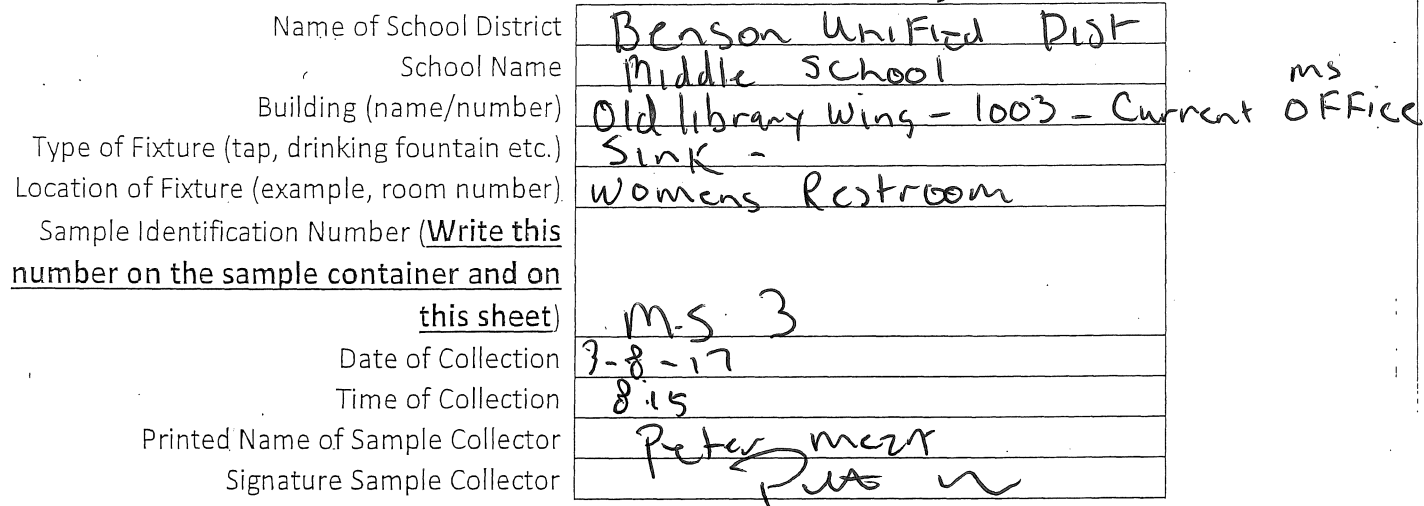 Name of School District Benson Unified Dist
School Name Middle School
ms
Building (name/number) Old library Wing - 1003 - Current OFFice
Type of Fixture (tap, drinking fountain etc.) Sink -
Location of Fixture (example, room number) Womens Restroom
Sample Identification Number (Write this
number on the sample container and on
this sheet) M-S 3
Date of Collection 3-8-17
Time of Collection 8:15
Printed Name of Sample Collector Peter
Signature Sample Collector